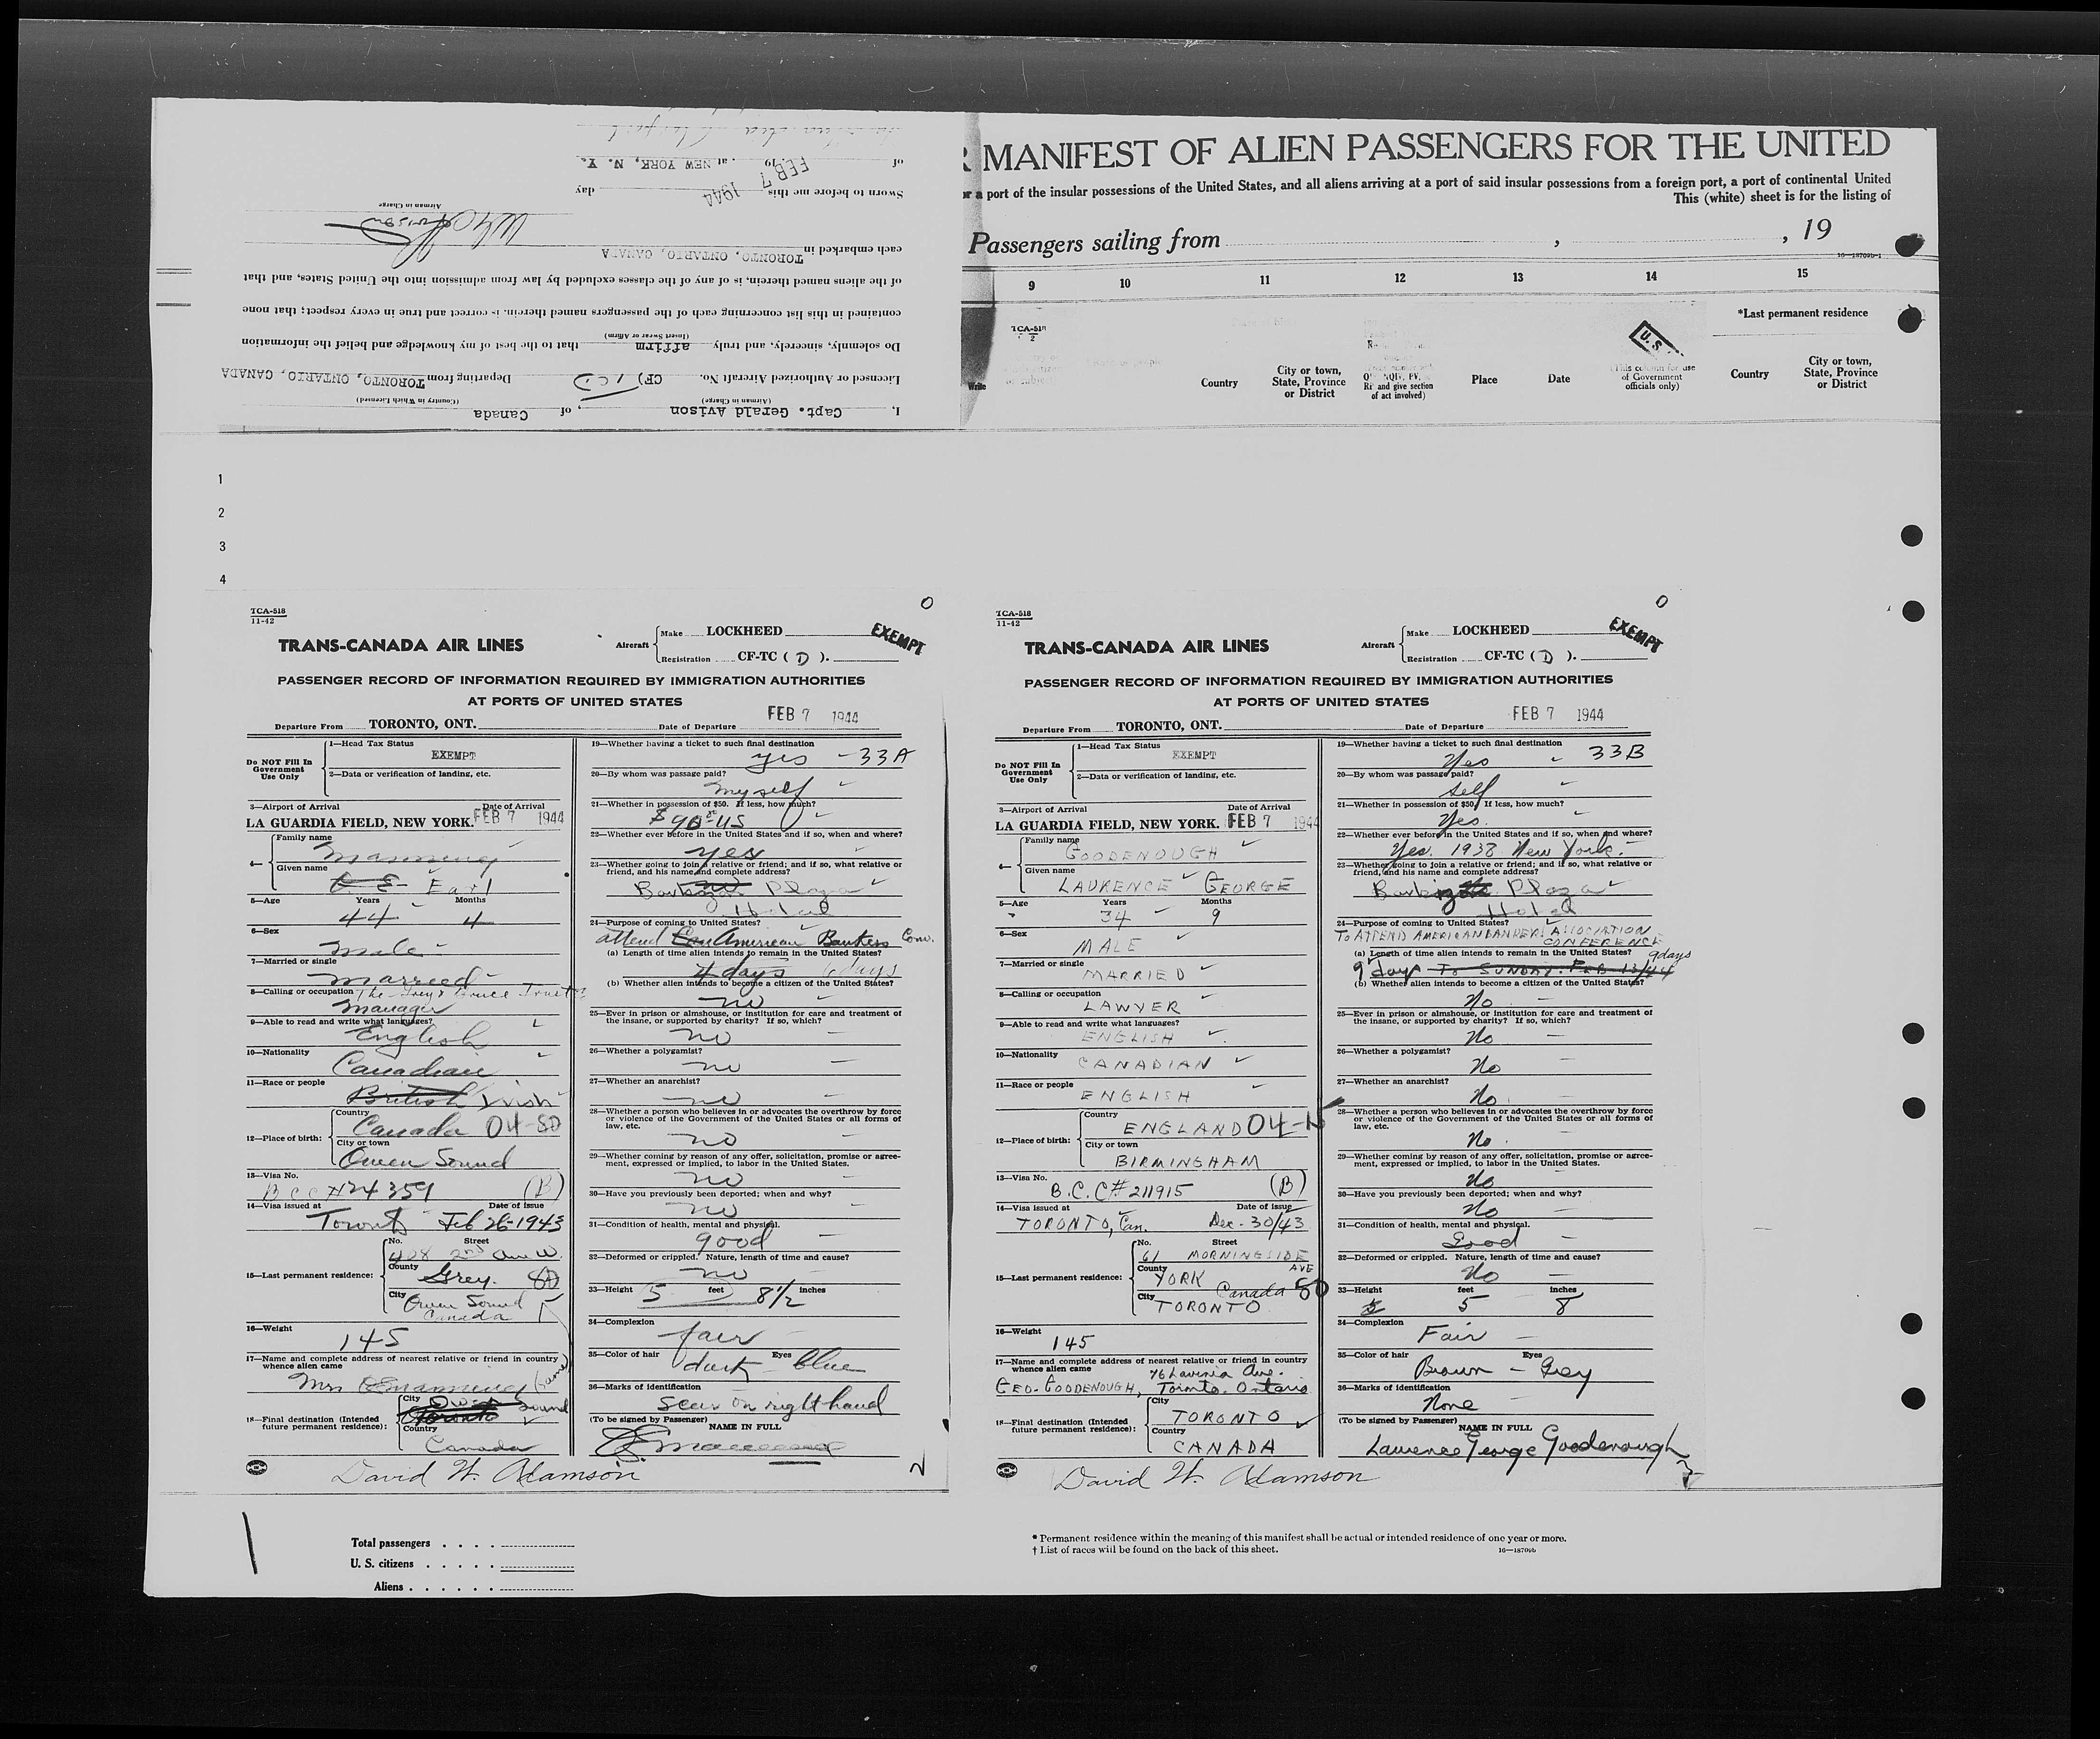 of FEB 7 1944 19 . at NEW YORK, N. Y.
Sworn to before me this day
Airman in Charge
each embarked in TORONTO, ONTARIO, CANADA
of the aliens named therein, is of any of the classes excluded by law from admission into the United States, and that
contained in this list concerning each of the passengers named therein, is correct and true in every respect; that none
(Insert Swear or Affirm)
Do solemnly, sincerely, and truly affirm that to the best of my knowledge and belief the information
Licensed or Authorized Aircraft No. CF) TCD Departing from TORONTO, ONTARIO, CANADA
(Airman in Charge) (Country in Which Licensed)
I, Capt. Gerald Avison, of Canada
R MANIFEST OF ALIEN PASSENGERS FOR THE UNITED
or a port of the insular possessions of the United States, and all aliens arriving at a port of said insular possessions from a foreign port, a port of continental United
This (white) sheet is for the listing of
Passengers sailing from , , 19
16—18709b-1
9 10 11 12 13 14 15
TCA-518
2
*Last permanent residence
U. S.
Write
Country
City or town, State, Province or District
QIV, NQIV, PV, RP and give section of act involved)
Place
Date
(This column for use of Government officials only)
Country
City or town, State, Province or District
1
2
3
4
TCA-518
11-42
0
TRANS-CANADA AIR LINES
Aircraft Make LOCKHEED
Registration CF-TC ( D ).
EXEMPT
PASSENGER RECORD OF INFORMATION REQUIRED BY IMMIGRATION AUTHORITIES
AT PORTS OF UNITED STATES
Departure From TORONTO, ONT. Date of Departure FEB 7 1944
Do NOT Fill In Government Use Only
1—Head Tax Status
EXEMPT
2—Data or verification of landing, etc.
3—Airport of Arrival Date of Arrival
LA GUARDIA FIELD, NEW YORK. FEB 7 1944
4— Family name
Manning
Given name
C E Earl
5—Age Years Months
44 4
6—Sex
Male
7—Married or single
Married
8—Calling or occupation The Grey & Bruce Trust
Manager
9—Able to read and write what languages?
English
10—Nationality
Canadian
11—Race or people
British Irish
12—Place of birth: Country
Canada 04-80
City or town
Owen Sound
13—Visa No.
BCC #24359 (B)
14—Visa issued at Date of issue
Toronto Feb 26-1943
15—Last permanent residence: No. Street
408 2nd Ave W.
County
Grey. 80
City
Owen Sound
Canada
16—Weight
145
17—Name and complete address of nearest relative or friend in country whence alien came
Mrs CE Manning (same)
18—Final destination (Intended future permanent residence): City
Toronto Owen Sound
Country
Canada
19—Whether having a ticket to such final destination
yes - 33A
20—By whom was passage paid?
myself
21—Whether in possession of $50. If less, how much?
$90.00 US
22—Whether ever before in the United States and if so, when and where?
yes
23—Whether going to join a relative or friend; and if so, what relative or friend, and his name and complete address?
no
Barbizon Plaza
Hotel
24—Purpose of coming to United States?
attend Can American Bankers Conv.
(a) Length of time alien intends to remain in the United States?
4 days 6 days
(b) Whether alien intends to become a citizen of the United States?
no
25—Ever in prison or almshouse, or institution for care and treatment of the insane, or supported by charity? If so, which?
no
26—Whether a polygamist?
no
27—Whether an anarchist?
no
28—Whether a person who believes in or advocates the overthrow by force or violence of the Government of the United States or all forms of law, etc.
no
29—Whether coming by reason of any offer, solicitation, promise or agreement, expressed or implied, to labor in the United States.
no
30—Have you previously been deported; when and why?
no
31—Condition of health, mental and physical.
good
32—Deformed or crippled. Nature, length of time and cause?
no
33—Height 5 feet 8 1/2 inches
34—Complexion
fair
35—Color of hair Eyes
dark blue
36—Marks of identification
Scar on right hand
(To be signed by Passenger) NAME IN FULL
CE Manning
David W. Adamson
2
TCA-518
11-42
0
TRANS-CANADA AIR LINES
Aircraft Make LOCKHEED
Registration CF-TC ( D ).
EXEMPT
PASSENGER RECORD OF INFORMATION REQUIRED BY IMMIGRATION AUTHORITIES
AT PORTS OF UNITED STATES
Departure From TORONTO, ONT. Date of Departure FEB 7 1944
Do NOT Fill In Government Use Only
1—Head Tax Status
EXEMPT
2—Data or verification of landing, etc.
3—Airport of Arrival Date of Arrival
LA GUARDIA FIELD, NEW YORK. FEB 7 1944
4— Family name
GOODENOUGH
Given name
LAURENCE GEORGE
5—Age Years Months
34 9
6—Sex
MALE
7—Married or single
MARRIED
8—Calling or occupation
LAWYER
9—Able to read and write what languages?
ENGLISH
10—Nationality
CANADIAN
11—Race or people
ENGLISH
12—Place of birth: Country
ENGLAND 04-15
City or town
BIRMINGHAM
13—Visa No.
B.C.C # 211915 (B)
14—Visa issued at Date of issue
TORONTO, Can. Dec - 30/43
15—Last permanent residence: No. Street
61 MORNINGSIDE AVE
County
YORK
City Canada 80
TORONTO
16—Weight
145
17—Name and complete address of nearest relative or friend in country whence alien came
76 Lavinia Ave.
GEO. GOODENOUGH, Toronto. Ontario
18—Final destination (Intended future permanent residence): City
TORONTO
Country
CANADA
19—Whether having a ticket to such final destination
Yes 33B
20—By whom was passage paid?
Self
21—Whether in possession of $50. If less, how much?
Yes.
22—Whether ever before in the United States and if so, when and where?
Yes. 1938 New York.
23—Whether going to join a relative or friend; and if so, what relative or friend, and his name and complete address?
Barbizon Plaza
Hotel
24—Purpose of coming to United States?
TO ATTEND AMERICAN BANKERS ASSOCIATION
CONFERENCE
(a) Length of time alien intends to remain in the United States? 9 days
9 days To SUNDAY. FEB 13/44
(b) Whether alien intends to become a citizen of the United States?
No
25—Ever in prison or almshouse, or institution for care and treatment of the insane, or supported by charity? If so, which?
No
26—Whether a polygamist?
No
27—Whether an anarchist?
No
28—Whether a person who believes in or advocates the overthrow by force or violence of the Government of the United States or all forms of law, etc.
No.
29—Whether coming by reason of any offer, solicitation, promise or agreement, expressed or implied, to labor in the United States.
No
30—Have you previously been deported; when and why?
No
31—Condition of health, mental and physical.
Good
32—Deformed or crippled. Nature, length of time and cause?
No
33—Height feet inches
5 8
34—Complexion
Fair
35—Color of hair Eyes
Brown - Grey
36—Marks of identification
None
(To be signed by Passenger) NAME IN FULL
Laurence George Goodenough
David W. Adamson
3
Total passengers . . . .
U. S. citizens . . . . .
Aliens . . . . . .
* Permanent residence within the meaning of this manifest shall be actual or intended residence of one year or more.
† List of races will be found on the back of this sheet. 16—18709b